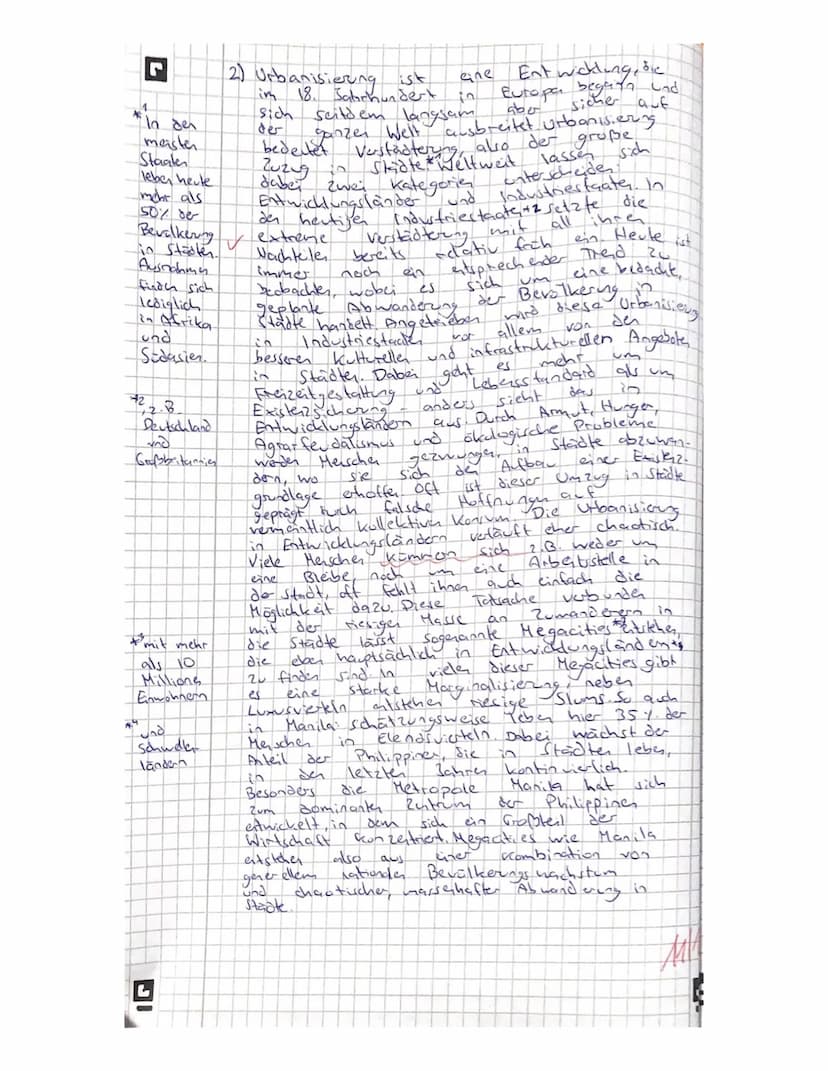 2) Urbanisierung ist eine Entwicklung, die
im 18. Jahrhundert in Europa begann und
sich seitdem langsam aber sicher auf
der ganzen Welt ausbreitet. Urbanisierung
bedeutet Verstädterung, also der große
Zuzug in Städte*1. Weltweit lassen sich
dabei zwei Kategorien unterscheiden:
Entwicklungsländer und Industriestaaten. In
den heutigen Industriestaaten*2 setzte die
extreme Verstädterung mit all ihren
Nachteilen bereits relativ früh ein. Heute ist
immer noch ein entsprechender Trend zu
beobachten, wobei es sich um eine bedachte,
geplante Abwanderung der Bevölkerung in
Städte handelt. Angetrieben wird diese Urbanisierung
in Industriestaaten vor allem von den
besseren kulturellen und infrastrukturellen Angeboten
in Städten. Dabei geht es mehr um
Freizeitgestaltung und Lebensstandard als um
Existenzsicherung - anders sieht das in
Entwicklungsländern aus. Durch Armut, Hunger,
Agrarfeudalismus und ökologische Probleme
werden Menschen gezwungen, in Städte abzuwan-
dern, wo sie sich den Aufbau einer Existenz-
grundlage erhoffen. Oft ist dieser Umzug in Städte
geprägt durch falsche Hoffnungen auf
vermeintlich kollektiven Konsum. Die Urbanisierung
in Entwicklungsländern verläuft eher chaotisch.
Viele Menschen kümmern sich z.B. weder um
eine Bleibe, noch um eine Arbeitsstelle in
der Stadt, oft fehlt ihnen auch einfach die
Möglichkeit dazu. Diese Tatsache verbunden
mit der riesigen Masse an Zuwanderern in
die Städte lässt sogenannte Megacities*3 entstehen,
die eben hauptsächlich in Entwicklungsländern*4
zu finden sind. In vielen dieser Megacities gibt
es eine starke Marginalisierung, neben
Luxusvierteln entstehen riesige Slums. So auch
in Manila: schätzungsweise leben hier 35% der
Menschen in Elendsvierteln. Dabei wächst der
Anteil der Philippinen, die in Städten leben,
in den letzten Jahren kontinuierlich.
Besonders die Metropole Manila hat sich
zum dominanten Zentrum der Philippinen
entwickelt, in dem sich ein Großteil der
Wirtschaft konzentriert. Megacities wie Manila
entstehen also aus einer Kombination von
generellem nationalen Bevölkerungswachstum
und chaotischer, massenhafter Abwanderung in
Städte.
*1
In den
meisten
Staaten
leben heute
mehr als
50% der
Bevölkerung
in Städten.
Ausnahmen
finden sich
lediglich
in Afrika
und
Südasien.
*2
z.B.
Deutschland
und
Großbritannien
*3 mit mehr
als 10
Millionen
Einwohnern
*4
und
Schwellen
ländern